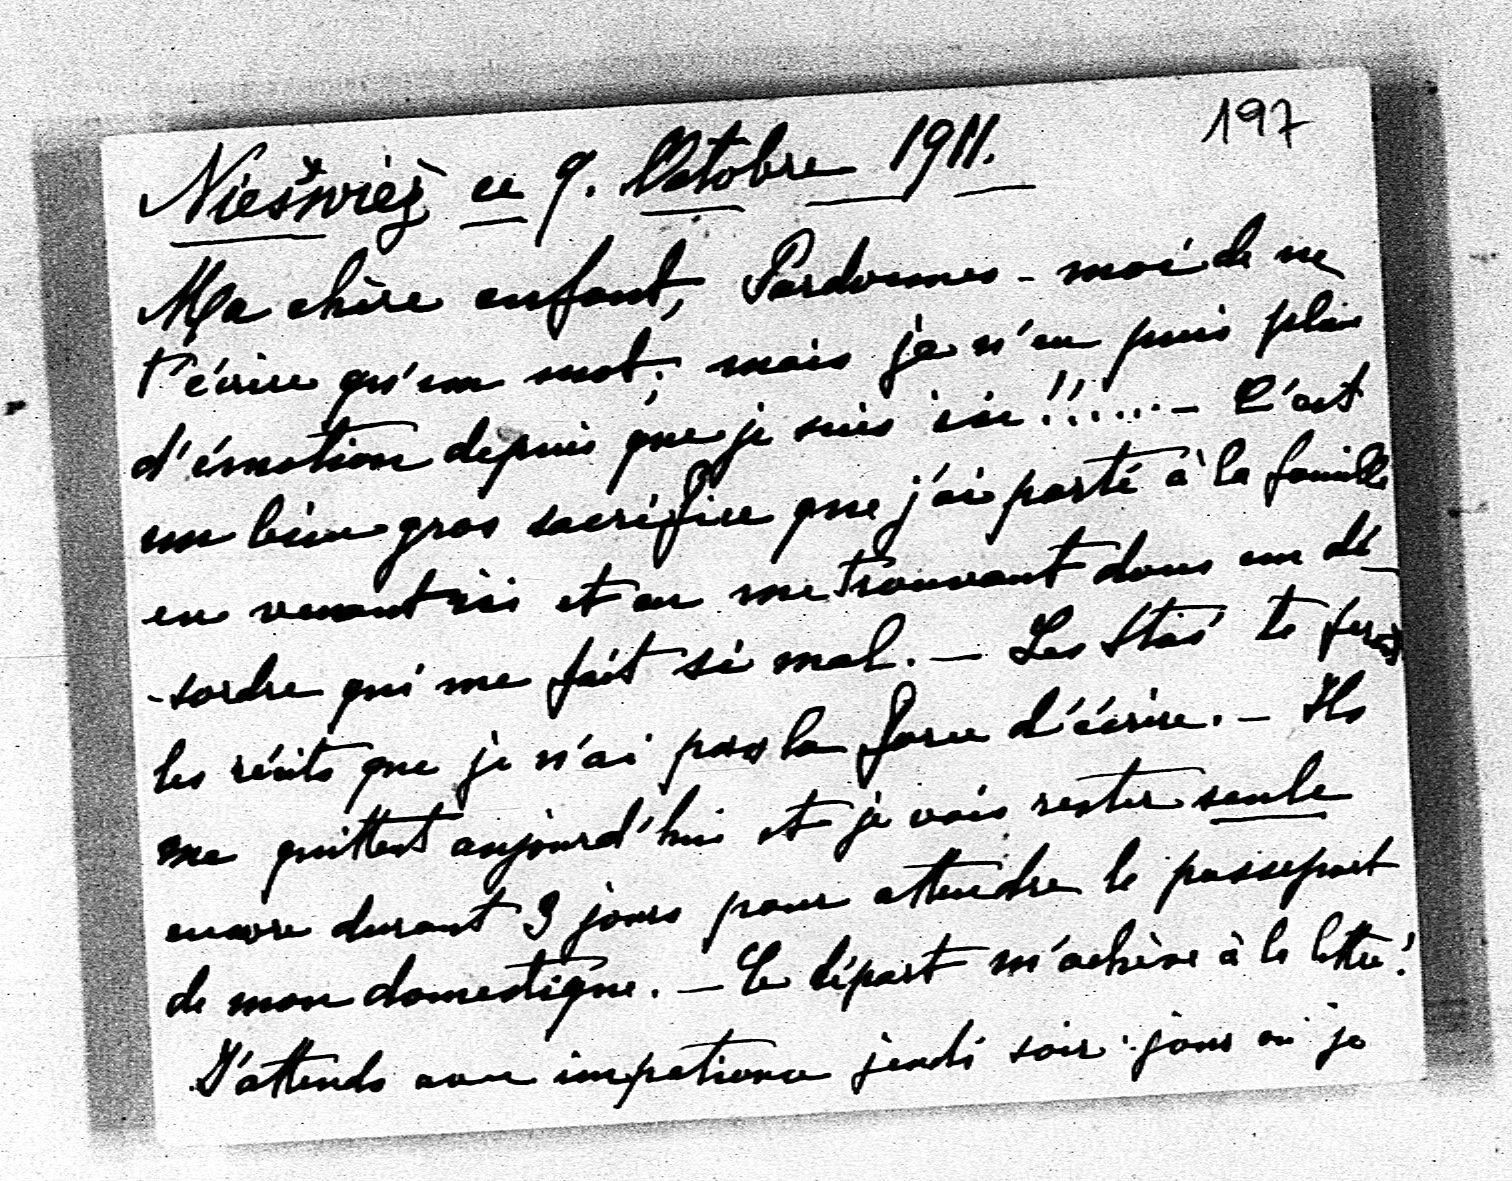 197
Nieśwież ce 9. Octobre 1911.
Ma chère enfant, Pardonnes-moi de ne
t'écrire qu'un mot; mais je n'en puis plus
d'émotion depuis que je suis ici!!...... – C'est
un bien gros sacrifice que j'ai porté à la famille
en venant ici et en me trouvant dans un dé
-sordre qui me fait si mal. – Les Staś te feront
les récits que je n'ai pas la force d'écrire. – Ils
me quittent aujourd'hui et je vais rester seule
encore durant 3 jours pour attendre le passeport
de mon domestique. – Ce départ m'achève à la lettre!
J'attends avec impatience jeudi soir jour où je